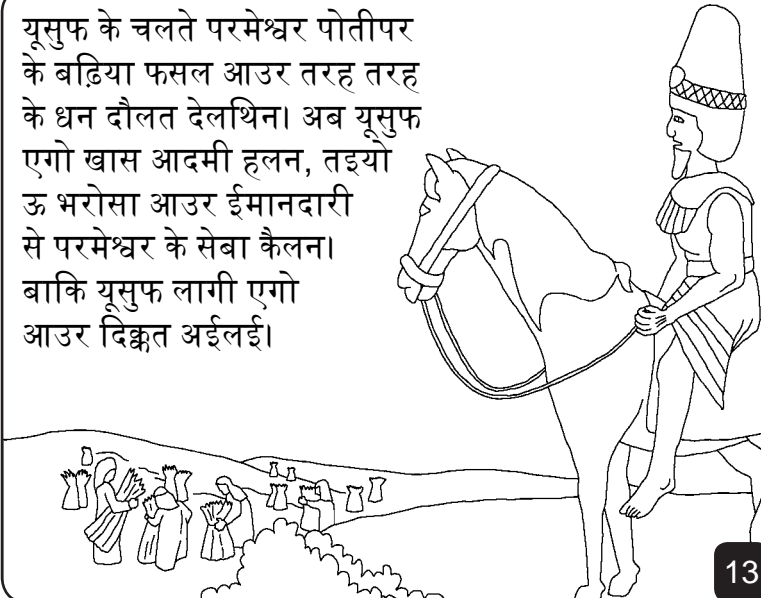 यूसुफ के चलते परमेश्वर पोतीपर
के बढ़िया फसल आउर तरह तरह
के धन दौलत देलथिन। अब यूसुफ
एगो खास आदमी हलन, तइयो
ऊ भरोसा आउर ईमानदारी
से परमेश्वर के सेबा कैलन।
बाकि यूसुफ लागी एगो
आउर दिक्कत अईलई।
13